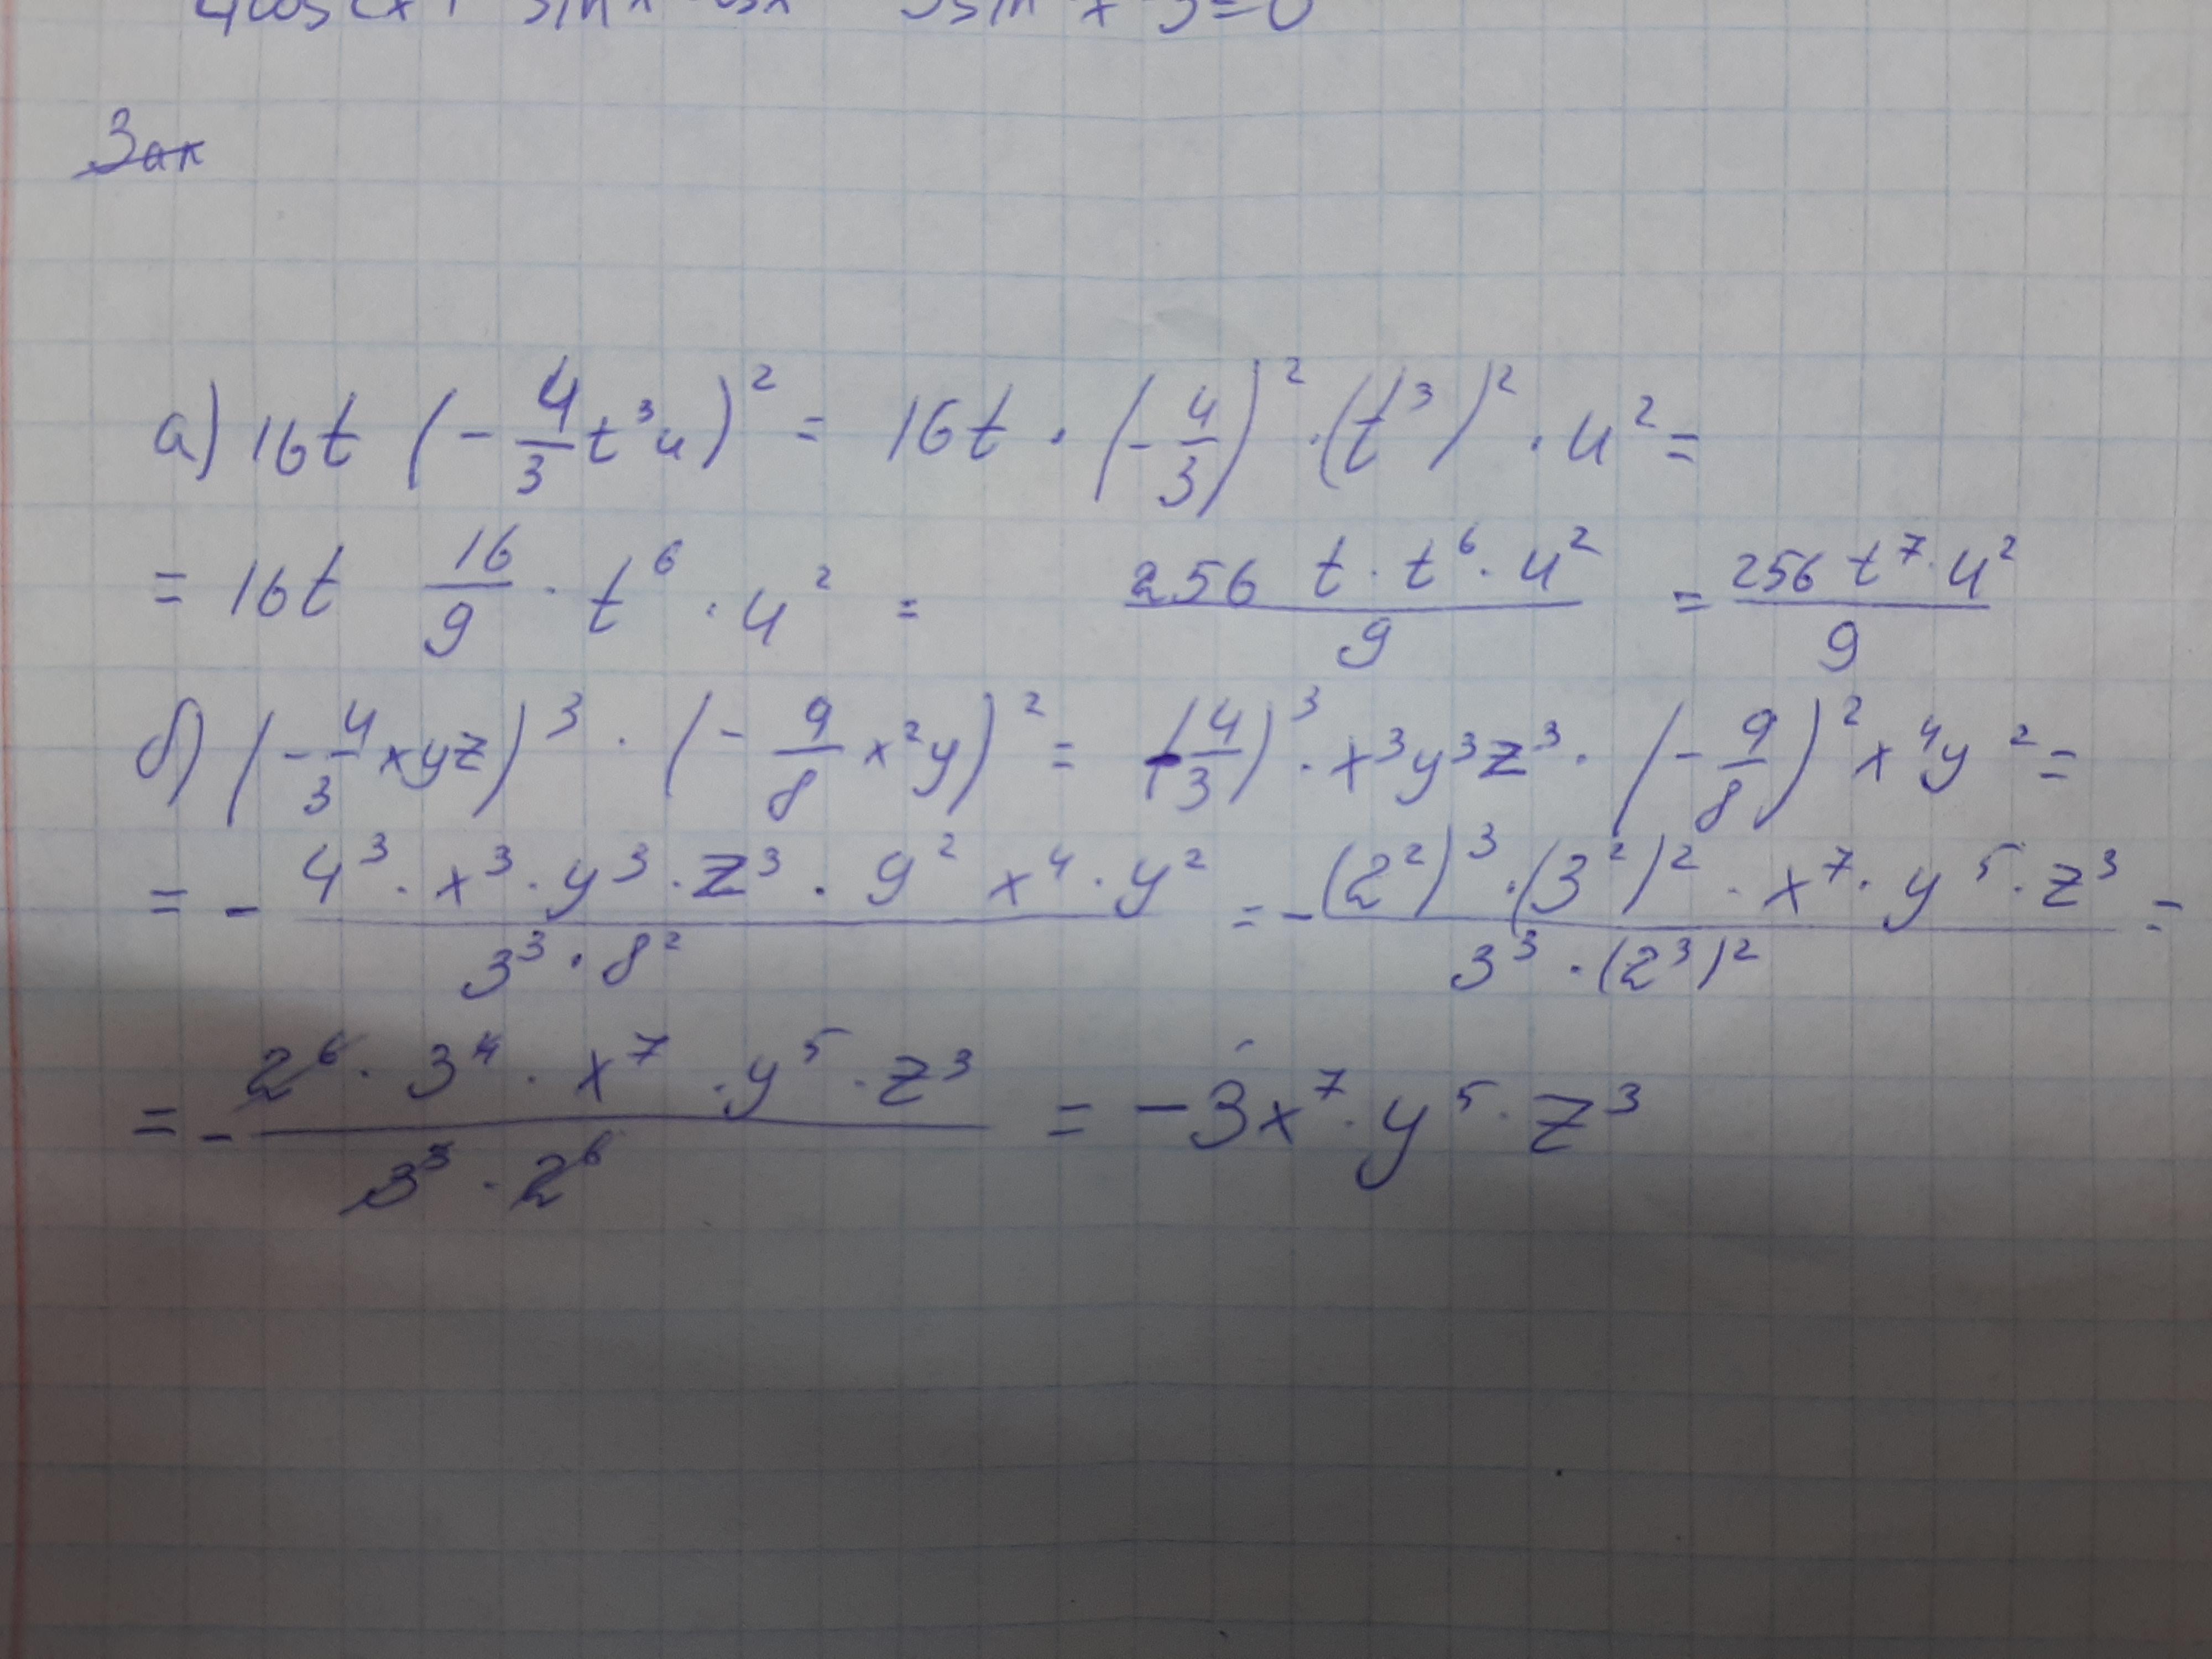 Зак
а) 16t (-4/3 t³u)² = 16t · (-4/3)² · (t³)² · u² =
= 16t 16/9 · t⁶ · u² = 256 t · t⁶ · u² / 9 = 256 t⁷ · u² / 9
б) (-4/3 xyz)³ · (-9/8 x²y)² = (-4/3)³ · x³y³z³ · (-9/8)² x⁴y² =
= - 4³ · x³ · y³ · z³ · 9² x⁴ · y² / 3³ · 8² = - (2²)³ · (3²)² · x⁷ · y⁵ · z³ / 3³ · (2³)² =
= - 2⁶ · 3⁴ · x⁷ · y⁵ · z³ / 3³ · 2⁶ = -3x⁷ · y⁵ · z³